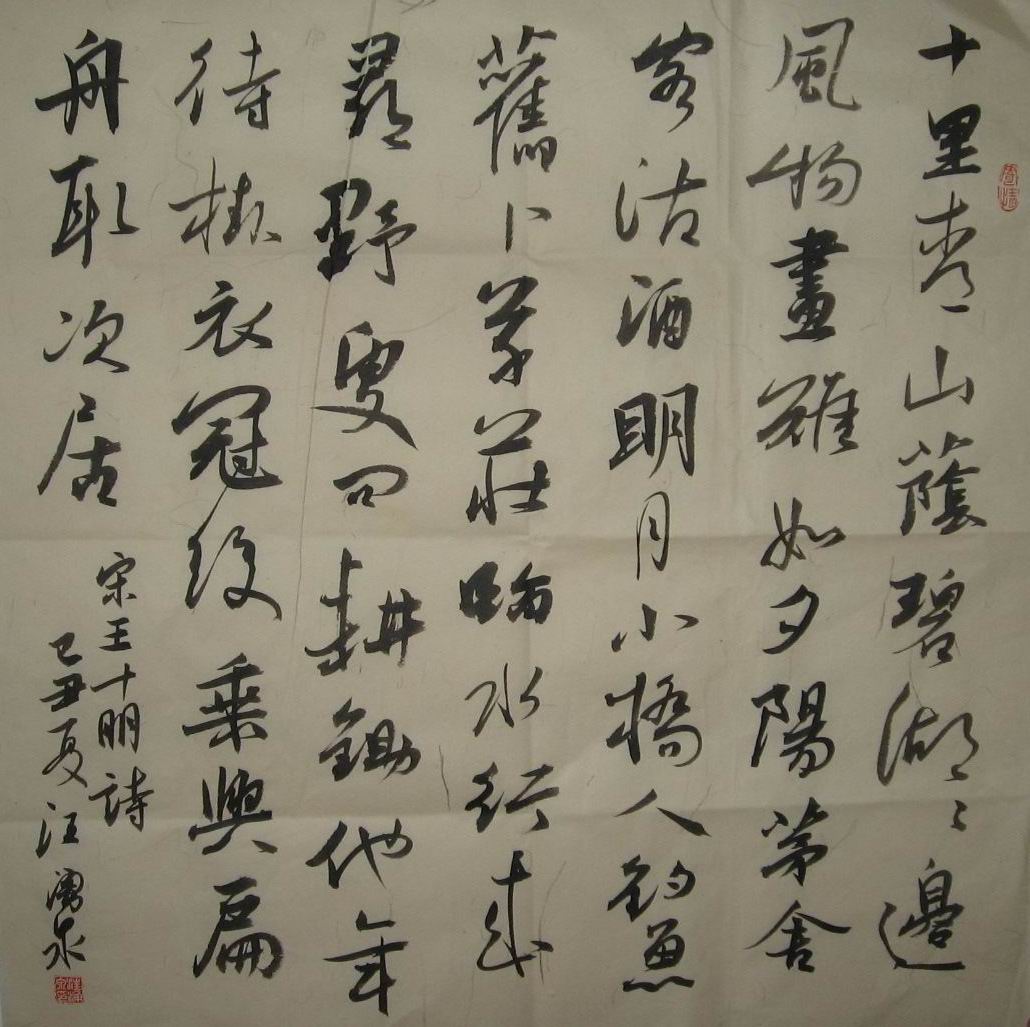 十里青山蔭碧湖〻邊
風物畫難如夕陽茅舍
客沽酒明月小橋人釣魚
舊卜草莊臨水竹來
尋野叟問耕鋤他年
待挂衣冠後乘興扁
舟取次居
宋王十朋詩
己丑夏汪湧泉